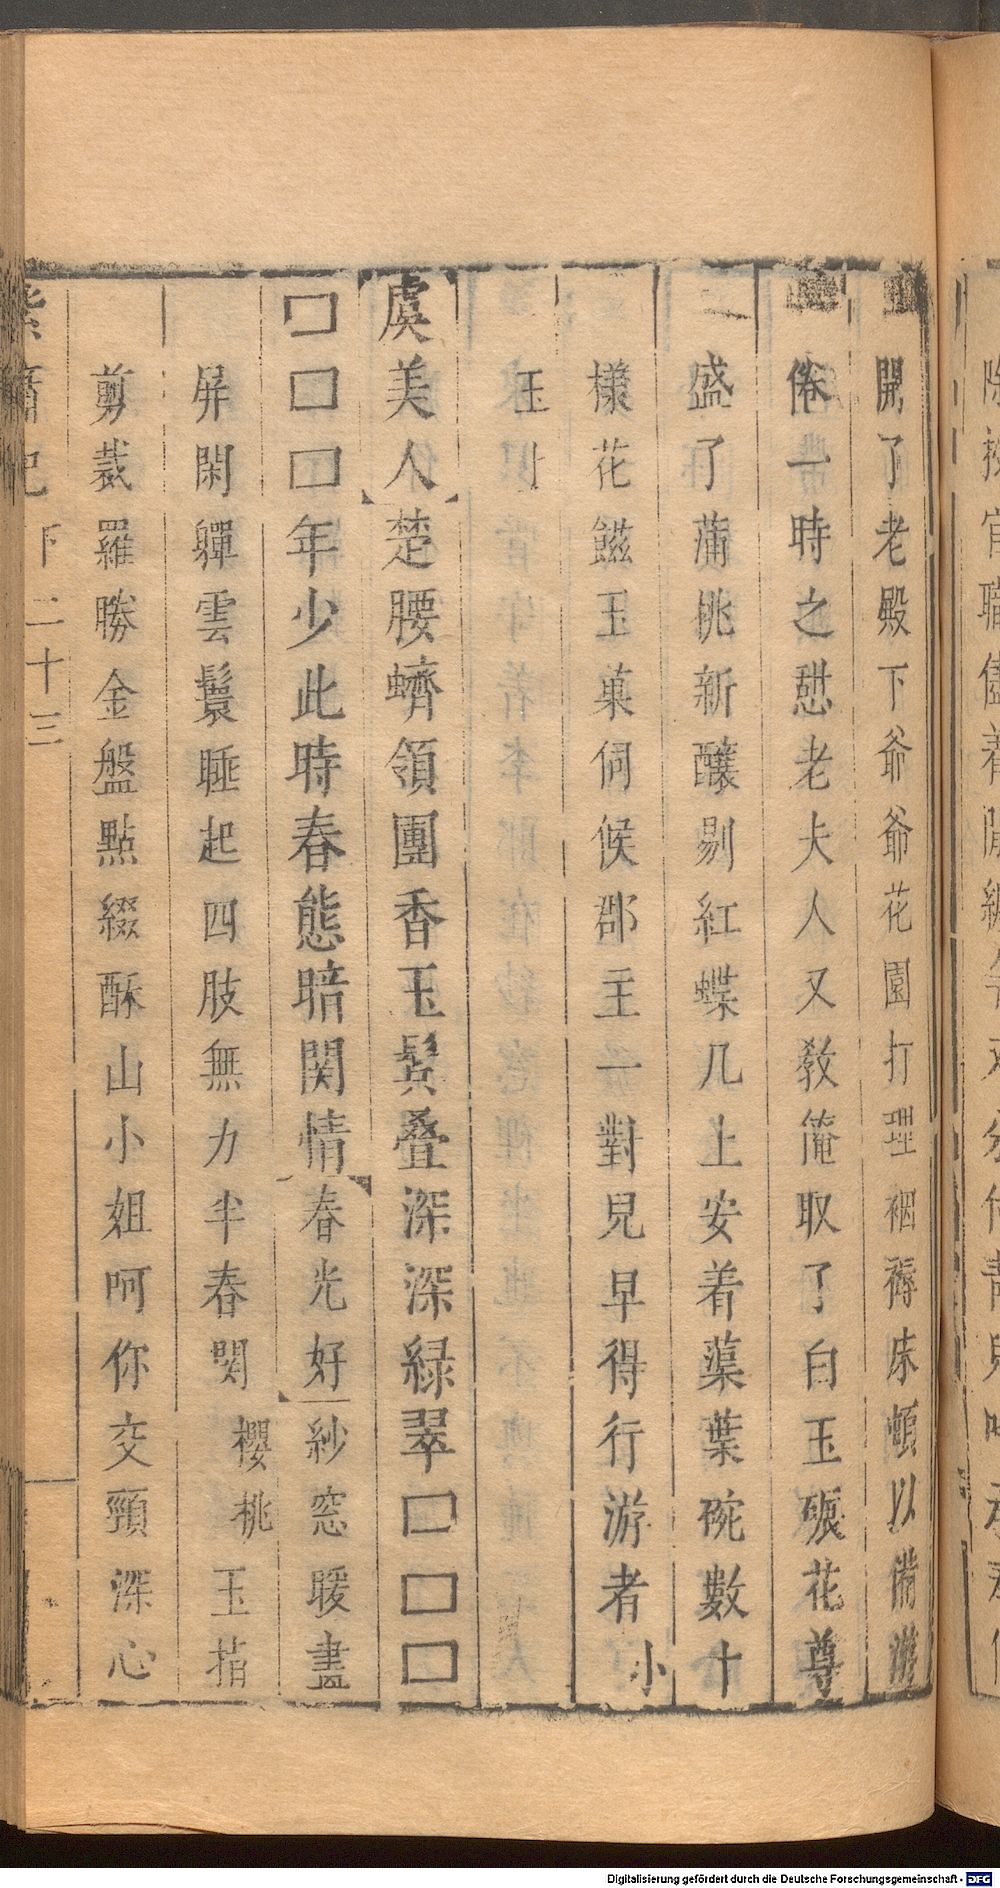 開了老殿下爺爺花園打理裀褥床頓以備游
倦一時之愆老夫人又教俺取了白玉碾花尊
盛了蒲桃新釀剔紅蝶几上安着蕖葉碗數十
樣花䭔玉菓伺候郡主一對兒早得行游者小
玉上
虞美人楚腰蠐領團香玉鬂叠深深綠翠□□□
□□□年少此時春態暗関情春光好紗窓暖畫
屏閑軃雲鬟睡起四肢無力半春閑櫻桃玉指
剪裁羅勝金盤點綴酥山小姐呵你交頸深心
紫簫記下二十三
Digitalisierung gefördert durch die Deutsche Forschungsgemeinschaft - DFG